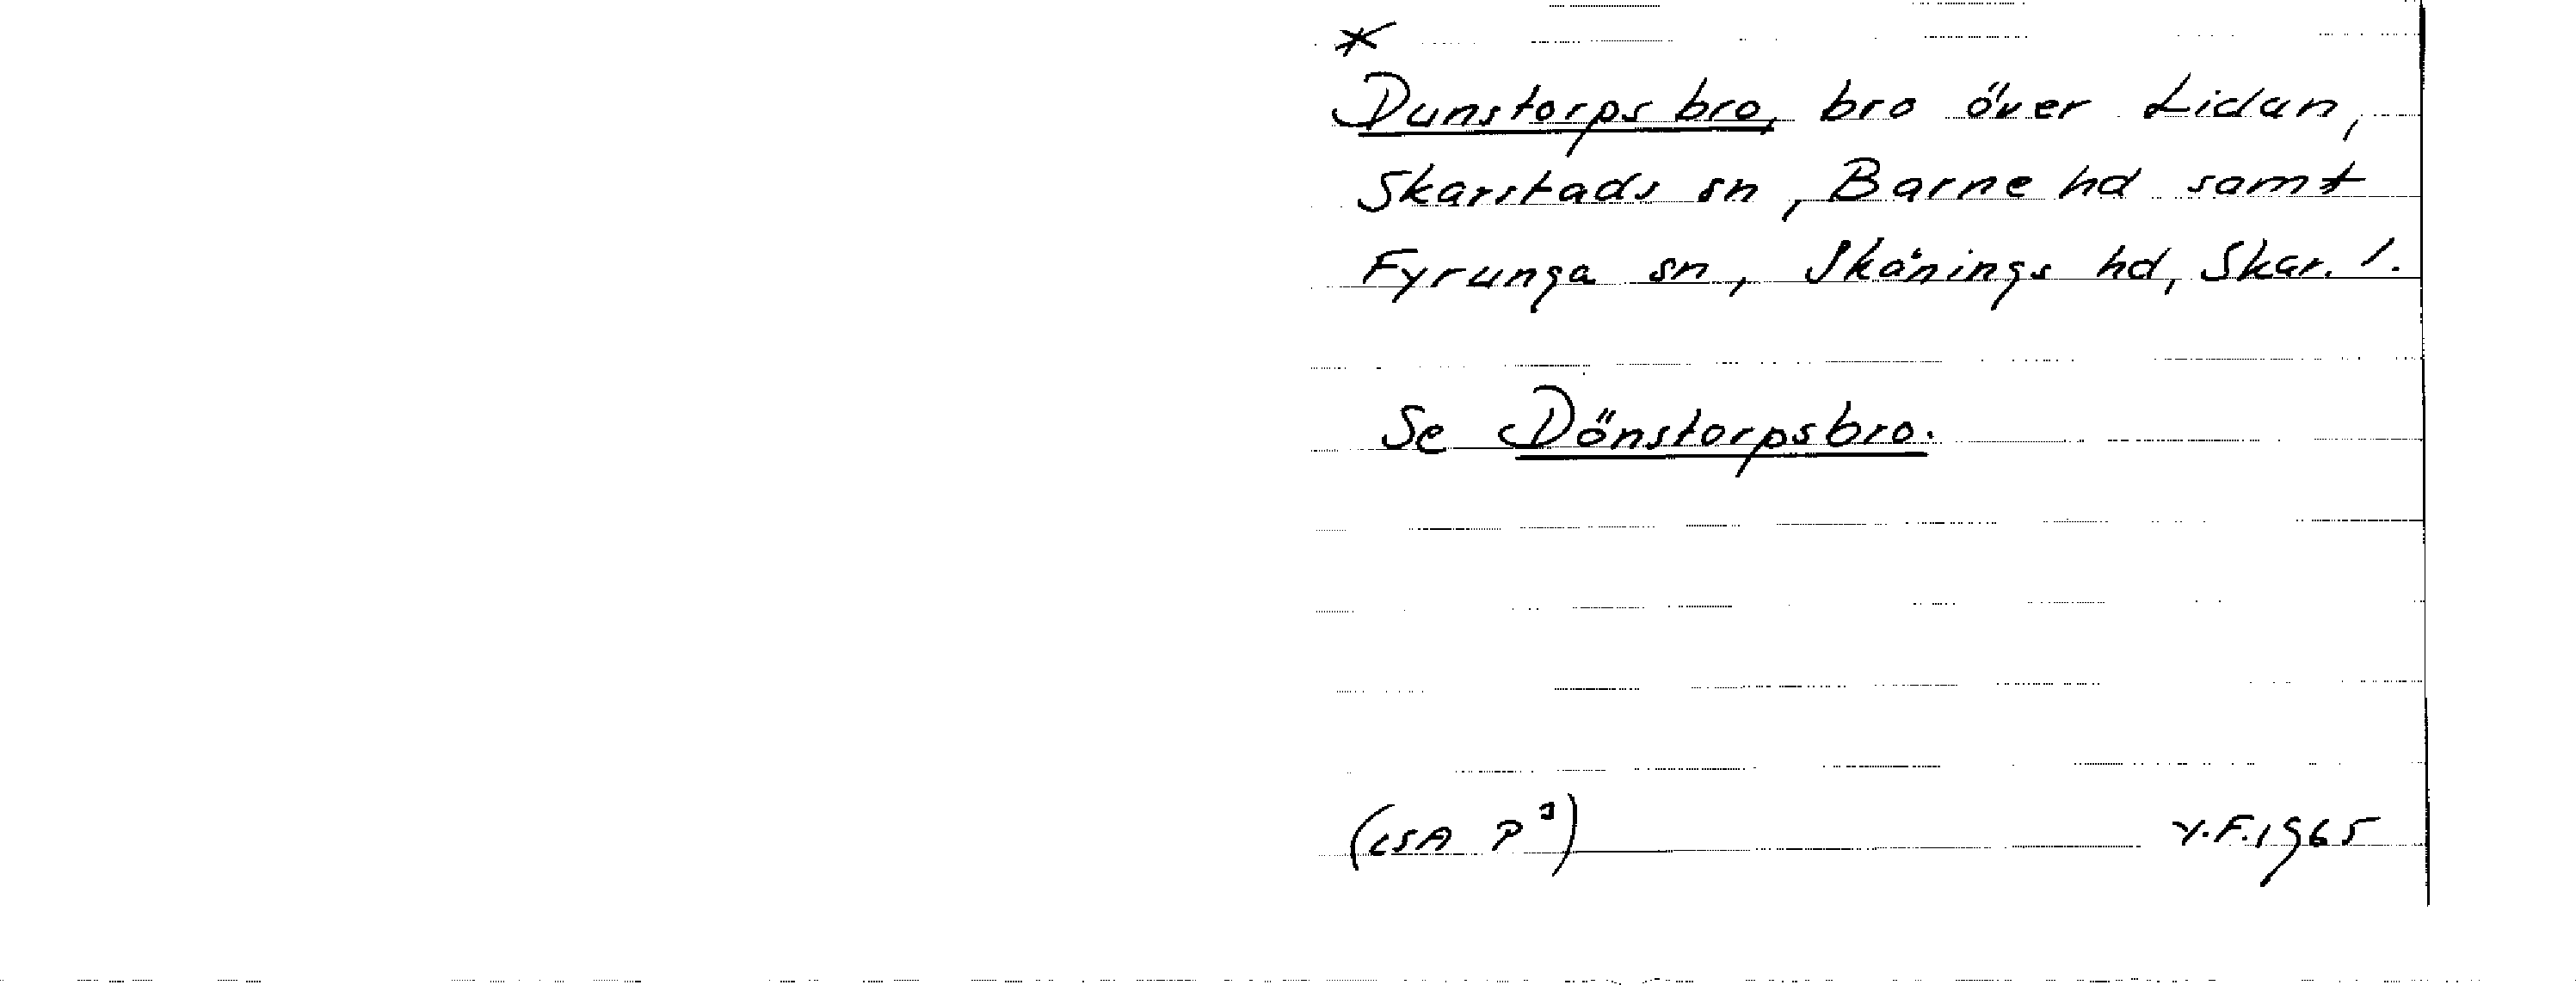 *
Dunstorps bro, bro över Lidan,
Skarstads sn, Barne hd samt
Fyrunga sn, Skånings hd, Skar. l.
Se Dönstorpsbro.
(LSA P³) V.F. 1965